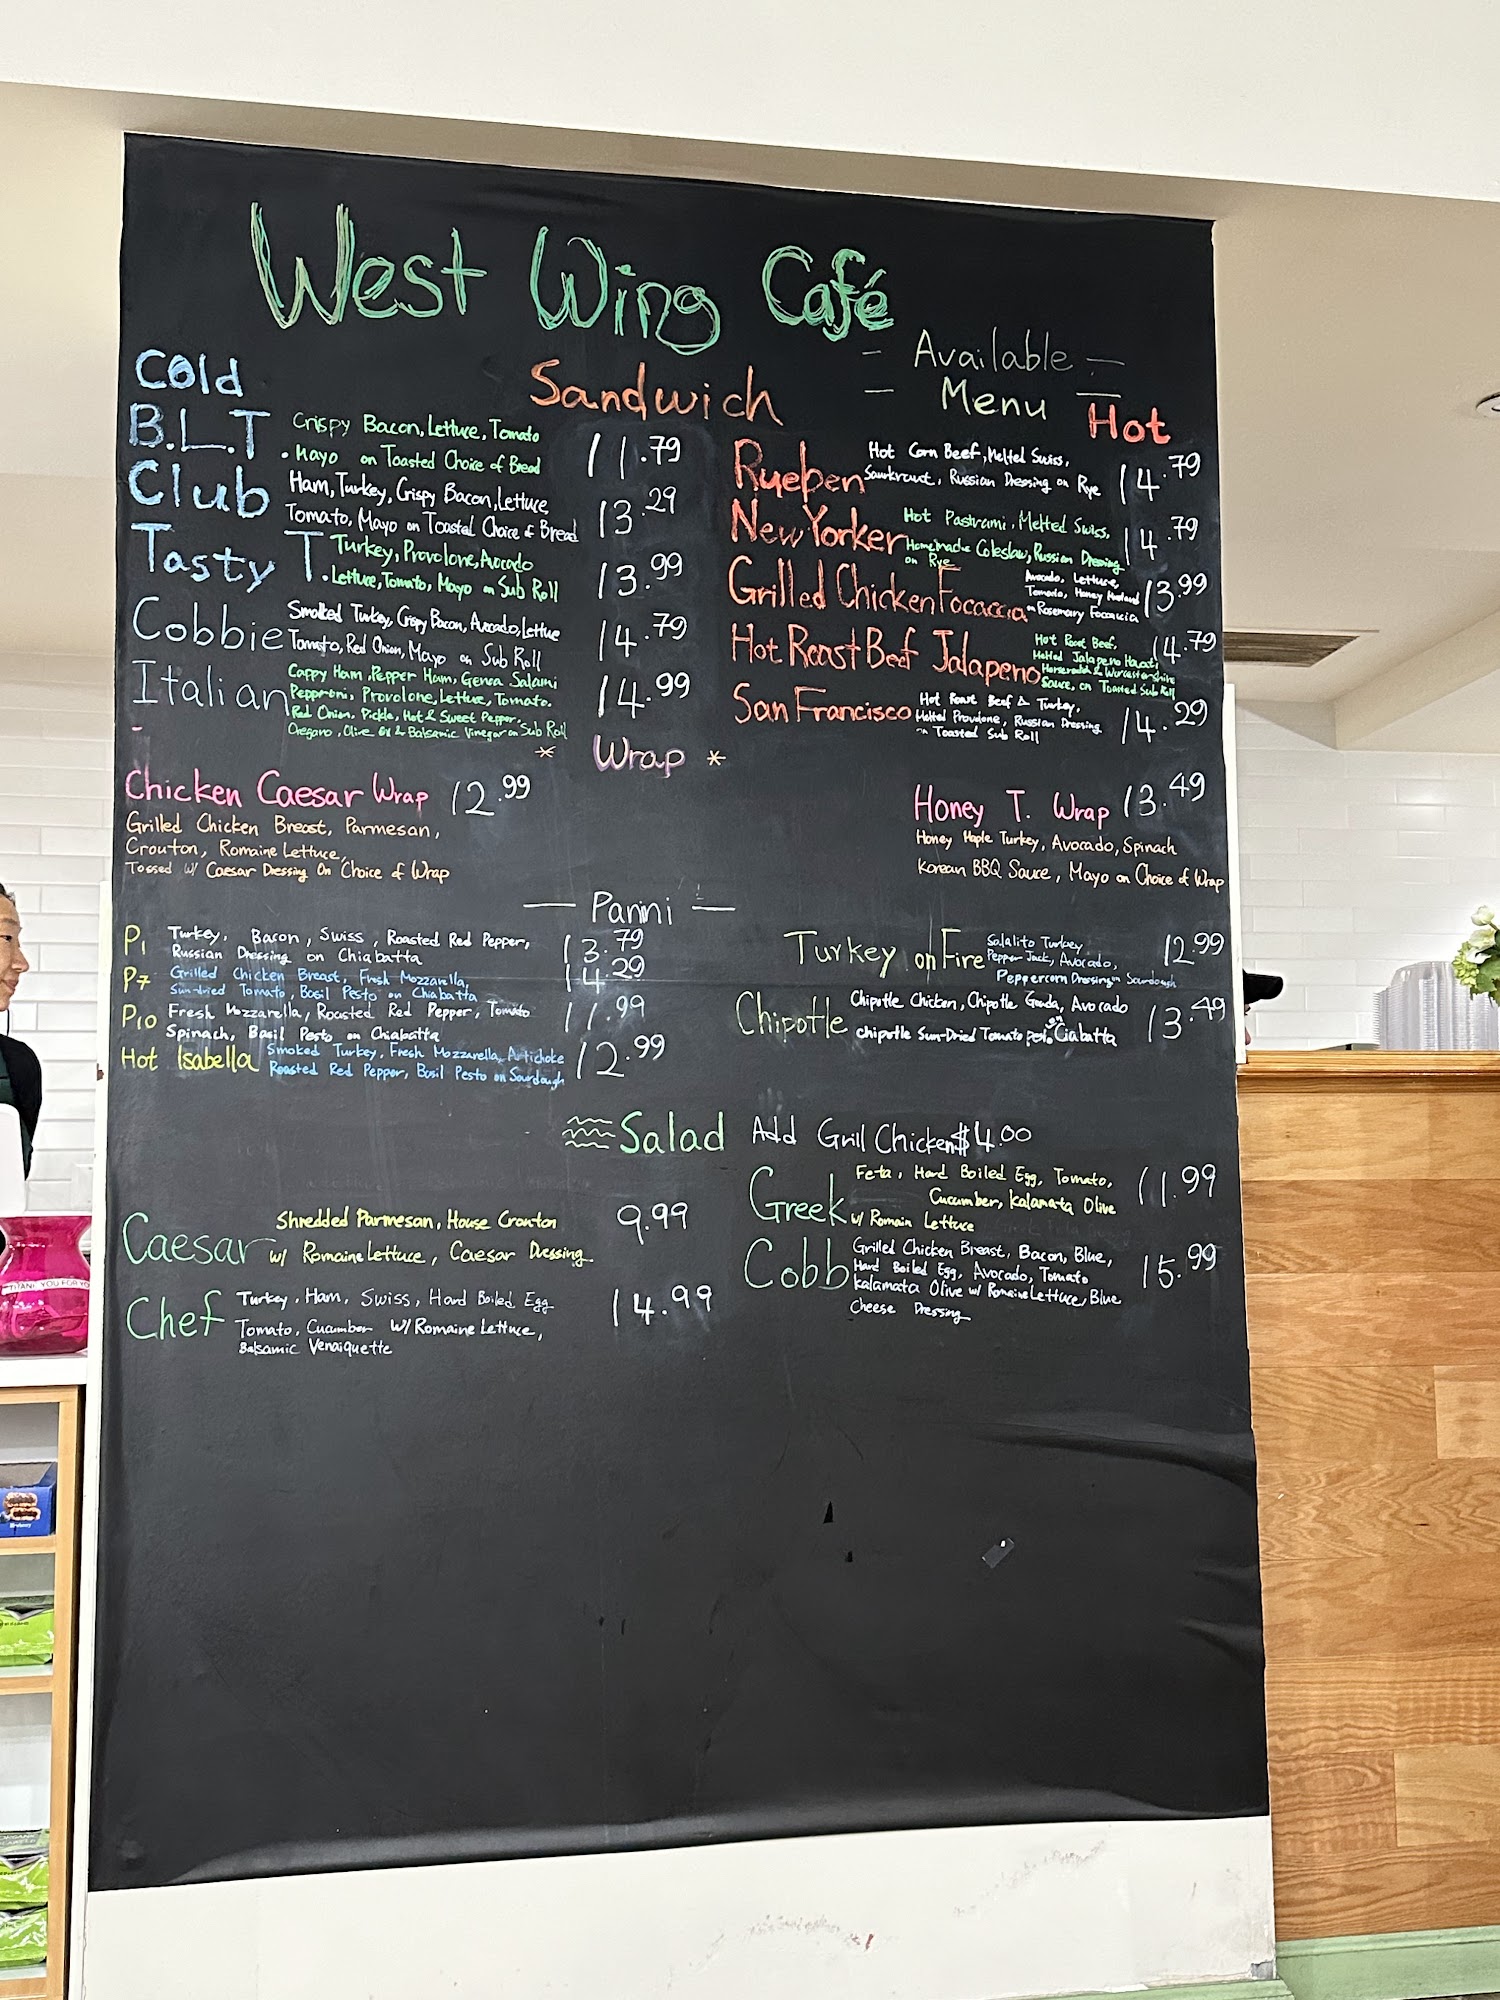 West Wing Café
- Available -
- Menu -
Sandwich
Cold
B.L.T Crispy Bacon, Lettuce, Tomato
. Mayo on Toasted Choice of Bread 11.79
Club Ham, Turkey, Crispy Bacon, Lettuce
Tomato, Mayo on Toasted Choice of Bread 13.29
Tasty T. Turkey, Provolone, Avocado
Lettuce, Tomato, Mayo on Sub Roll 13.99
Cobbie Smoked Turkey, Crispy Bacon, Avocado, Lettuce
Tomato, Red Onion, Mayo on Sub Roll 14.79
Italian Cappy Ham, Pepper Ham, Genoa Salami
Pepproni, Provolone, Lettuce, Tomato.
Red Onion, Pickle, Hot & Sweet Pepper,
Oregano, Olive Oil & Balsamic Vinegar on Sub Roll 14.99
Hot
Rueben Hot Corn Beef, Melted Swiss,
Saurkraut, Russian Dressing on Rye 14.79
New Yorker Hot Pastrami, Melted Swiss,
Homemade Coleslaw, Russian Dressing
on Rye 14.79
Grilled Chicken Focaccia Avocado, Lettuce,
Tomato, Honey Mustard
on Rosemary Focaccia 13.99
Hot Roast Beef Jalapeno Hot Roast Beef,
Melted Jalapeno Havati,
Horseradish & Worcestershire
Sauce, on Toasted Sub Roll 14.79
San Francisco Hot Roast Beef & Turkey,
Melted Provolone, Russian Dressing
on Toasted Sub Roll 14.29
* Wrap *
Chicken Caesar Wrap 12.99
Grilled Chicken Breast, Parmesan,
Crouton, Romaine Lettuce,
Tossed w/ Caesar Dressing On Choice of Wrap
Honey T. Wrap 13.49
Honey Maple Turkey, Avocado, Spinach
Korean BBQ Sauce, Mayo on Choice of Wrap
— Panini —
P1 Turkey, Bacon, Swiss, Roasted Red Pepper,
Russian Dressing on Chiabatta 13.79
P7 Grilled Chicken Breast, Fresh Mozzarella,
Sun-dried Tomato, Basil Pesto on Chiabatta 14.29
P10 Fresh Mozzarella, Roasted Red Pepper, Tomato
Spinach, Basil Pesto on Chiabatta 11.99
Hot Isabella Smoked Turkey, Fresh Mozzarella, Artichoke
Roasted Red Pepper, Basil Pesto on Sourdough 12.99
Turkey on Fire Salalito Turkey
Pepper Jack, Avocado,
Peppercorn Dressing on Sourdough 12.99
Chipotle Chipotle Chicken, Chipotle Gouda, Avocado
chipotle Sun-Dried Tomato pesto on Ciabatta 13.49
Salad Add Grill Chicken $4.00
Caesar Shredded Parmesan, House Crouton
w/ Romaine Lettuce, Caesar Dressing 9.99
Chef Turkey, Ham, Swiss, Hard Boiled Egg
Tomato, Cucumber w/ Romaine Lettuce,
Balsamic Venaiquette 14.99
Greek Feta, Hard Boiled Egg, Tomato,
Cucumber, Kalamata Olive
w/ Romain Lettuce 11.99
Cobb Grilled Chicken Breast, Bacon, Blue,
Hard Boiled Egg, Avocado, Tomato
Kalamata Olive w/ Romaine Lettuce, Blue
Cheese Dressing 15.99
THANK YOU FOR YO